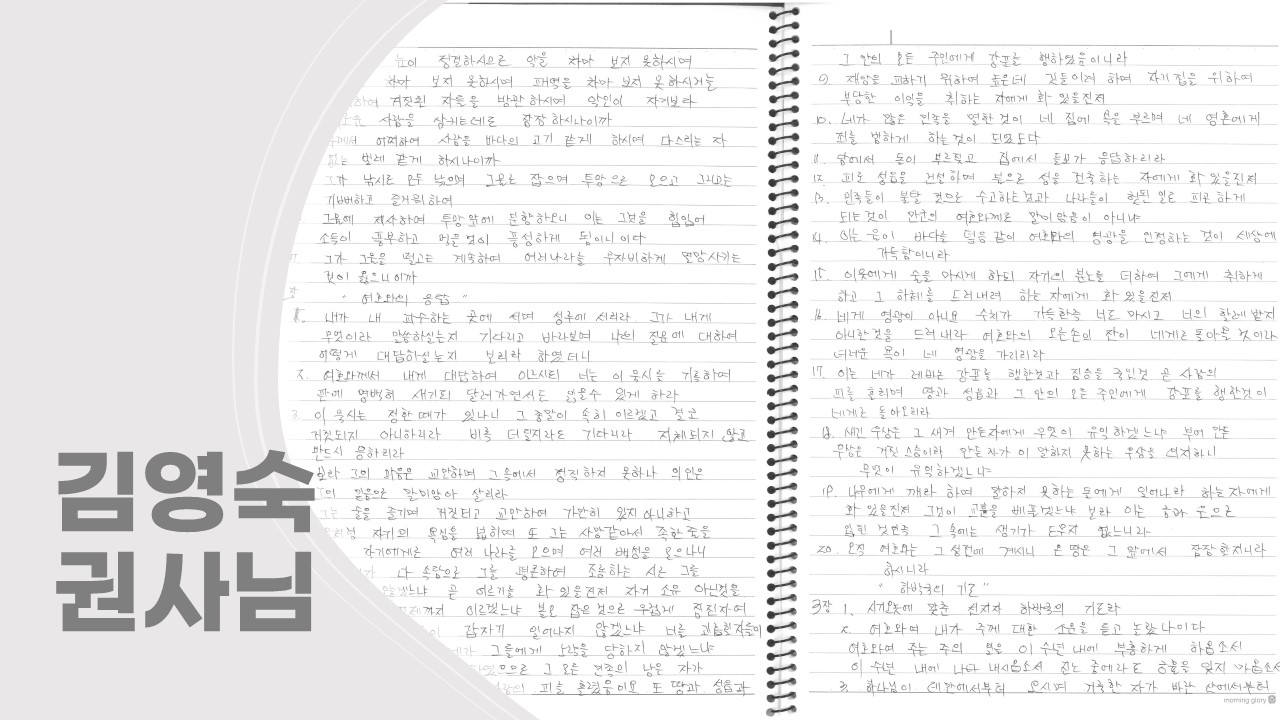 김영숙
권사님
정결하시므로 악을 차마 보지 못하시며
차마 보지 못하시거늘 패역을 차마 보지 못하시거늘
거짓된 자들을 방관하시며 악인이 자기보다
사람을 삼키는데도 잠잠하시나이까
어찌하여 사람을 바다의 고기 같게 하시며 다스리는 자
벌레 같게 하시나이까
낚시로 모두 낚으며 그물로 잡으며 투망으로 모으고 그리고는
기뻐하고 즐거워하여
제사하며 투망 앞에 분향하오니 이는 그것을 힘입어
소득이 풍부하고 먹을 것이 풍성하게 됨이니이다
그가 그물을 떨고는 계속하여 여러나라를 무자비하게 멸망시키는
것이 옳으니이까
" 여호와의 응답 "
내가 내 파수하는 곳에 서며 성루에 서리라 그가 내게
무엇이라 말씀하실는지 기다리고 바라보며 나의 질문에 대하여
어떻게 대답하실는지 보리라 하였더니
2. 여호와께서 내게 대답하여 이르시되 너는 이 묵시를 기록하여
판에 명백히 새기되 달려가면서도 읽을 수 있게 하라
3. 이 묵시는 정한 때가 있나니 그 종말이 속히 이르겠고 결코
거짓되지 아니하리라 비록 더딜지라도 기다리라 지체되지 않고
반드시 응하리라
그의 마음은 교만하며 그 속에서 정직하지 못하나 의인은
그의 믿음으로 말미암아 살리라
술을 즐기며 거짓되고 교만하여 가만히 있지 아니하고
자기의 욕심을 넓히며 또 그는 사망 같아서 족한 줄을
자기에게로 여러 나라를 모으며 여러 백성을 모으나니
다 속담으로 그를 평론하며 조롱하는 시로 그를
화 있을진저 자기 소유 아닌것을
언제까지 이르겠느냐 볼모 잡은 것으로 무겁게 짐진 자여
갑자기 일어나지 않겠느냐 너를 괴롭힐자들이
그들에게 노략을 당하지 않겠느냐
그 모든 민족의 남은 자가
피를 흘렸음이요 또 땅과 성읍과
그 안의 모든 주민에게 강포를 행하였음이니라
9. 재앙을 피하기 위하여 높은데 깃들이려 하며 자기 집을 위하여
부당한 이익을 취하는 자에게 화 있을진저
10. 네가 많은 민족을 멸한 것이 네 집에 욕을 부르며 네 영혼에게
죄를 범하게 하는 것이 되었도다
11. 담에서 돌이 부르짖고 집에서 들보가 응답하리라
12. 피로 성읍을 건설하며 불의로 성을 건축하는 자에게 화 있을진저
13. 민족들이 불탈 것으로 수고하는것과 나라들이 헛된 일로 피곤하게
되는 것이 만군의 여호와께로 말미암음이 아니냐
14. 이는 물이 바다를 덮음 같이 여호와의 영광을 인정하는 것이 세상에
가득함이니라
15. 이웃에게 술을 마시게 하되 자기의 분노를 더하여 그에게 취하게
하고 그 하체를 드러내려 하는 자에게 화 있을진저
16. 네게 영광이 아니요 수치가 가득한즉 너도 마시고 너의 할례 받지
아니한 것을 드러내라 여호와의 오른손의 잔이 네게로 돌아올 것이라
더러운 욕이 네 영광을 가리리라
17. 이는 네가 레바논에 강포를 행한 것과 짐승을 죽인것 곧 사람의
피를 흘리며 땅과 성읍과 그 안의 모든 주민에게 강포를 행한것이
네게로 돌아오리라
18. 새긴 우상은 그 새겨 만든자에게 무엇이 유익하겠느냐 부어
만든 우상은 거짓 스승이라 만든자가 이 말하지 못하는 우상을 의지하니
무엇이 유익하겠느냐
19. 나무에게 깨라 하며 말하지 못하는 돌에게 일어나라 하는 자에게
화 있을진저 그것이 교훈을 베풀겠느냐 보라 이는 금과 은으로
입힌 것인즉 그 속에는 생기가 도무지 없느니라
20. 오직 여호와는 그 성전에 계시니 온 땅은 그 앞에서 잠잠할지니라
하시니라
" 하박국의 기도 "
3장 1. 시기오놋에 맞춘 선지자 하박국의 기도라
2. 여호와여 내가 주께 대한 소문을 듣고 놀랐나이다
여호와여 주는 주의 일을 이 수년 내에 부흥하게 하옵소서
이 수년 내에 나타내시옵소서 진노 중에라도 긍휼을 잊지 마옵소서
3. 하나님이 데만에서부터 오시며 거룩한 자가 바란 산에서부터
morning glory